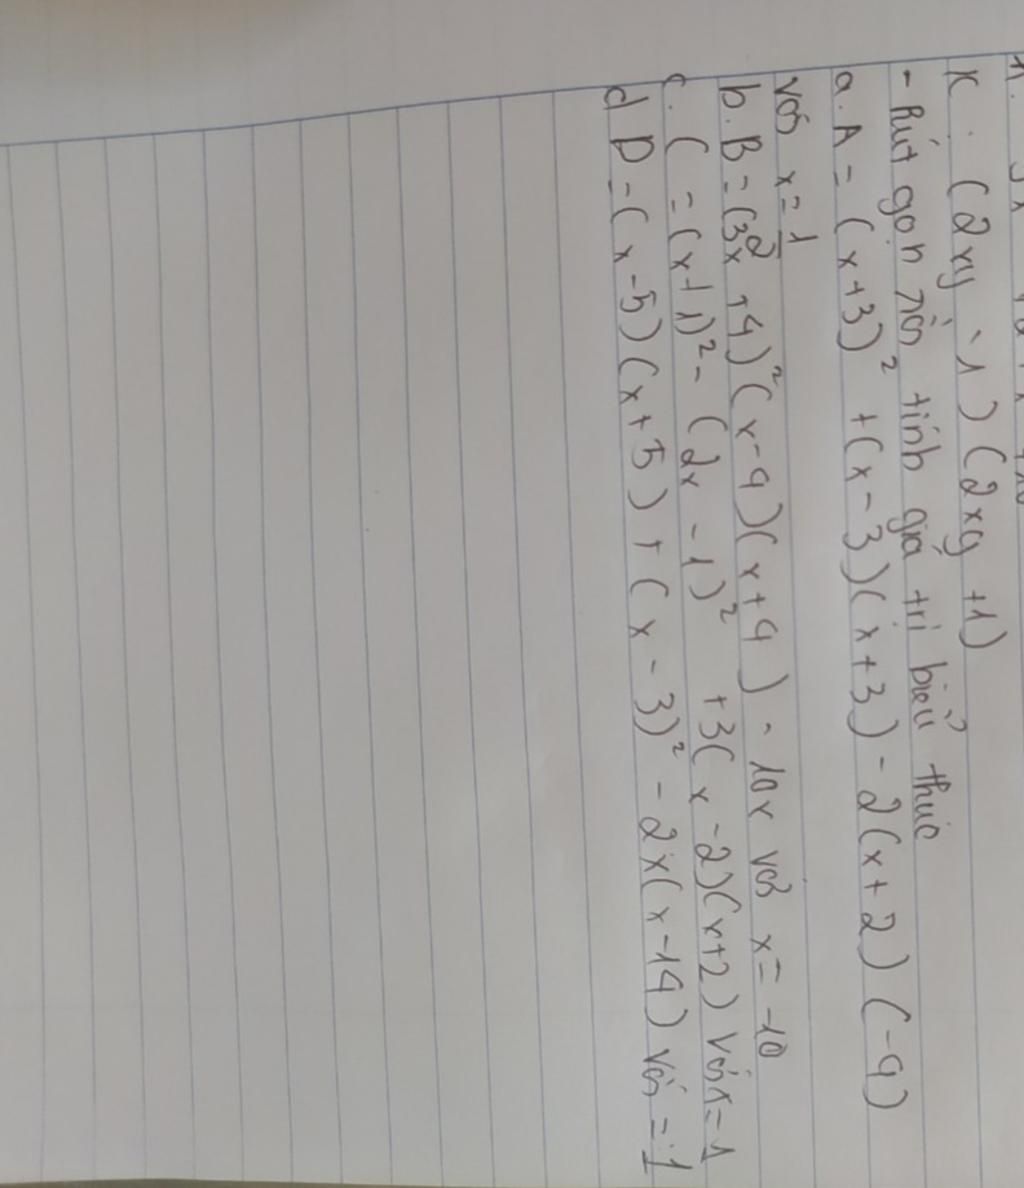 K. (2xy - 1) (2xy + 1)
- Rút gọn rồi tính giá trị biểu thức
a. A = (x+3)² + (x-3)(x+3) - 2(x+2)(-4)
với x = 1/2
b. B = (3x + 4)² (x-4)(x+4) - 10x với x = -10
c. C = (x+1)² - (2x - 1)² + 3(x-2)(x+2) với x = 1
d D = (x-5)(x+5) + (x-3)² - 2x(x-14) với = 1